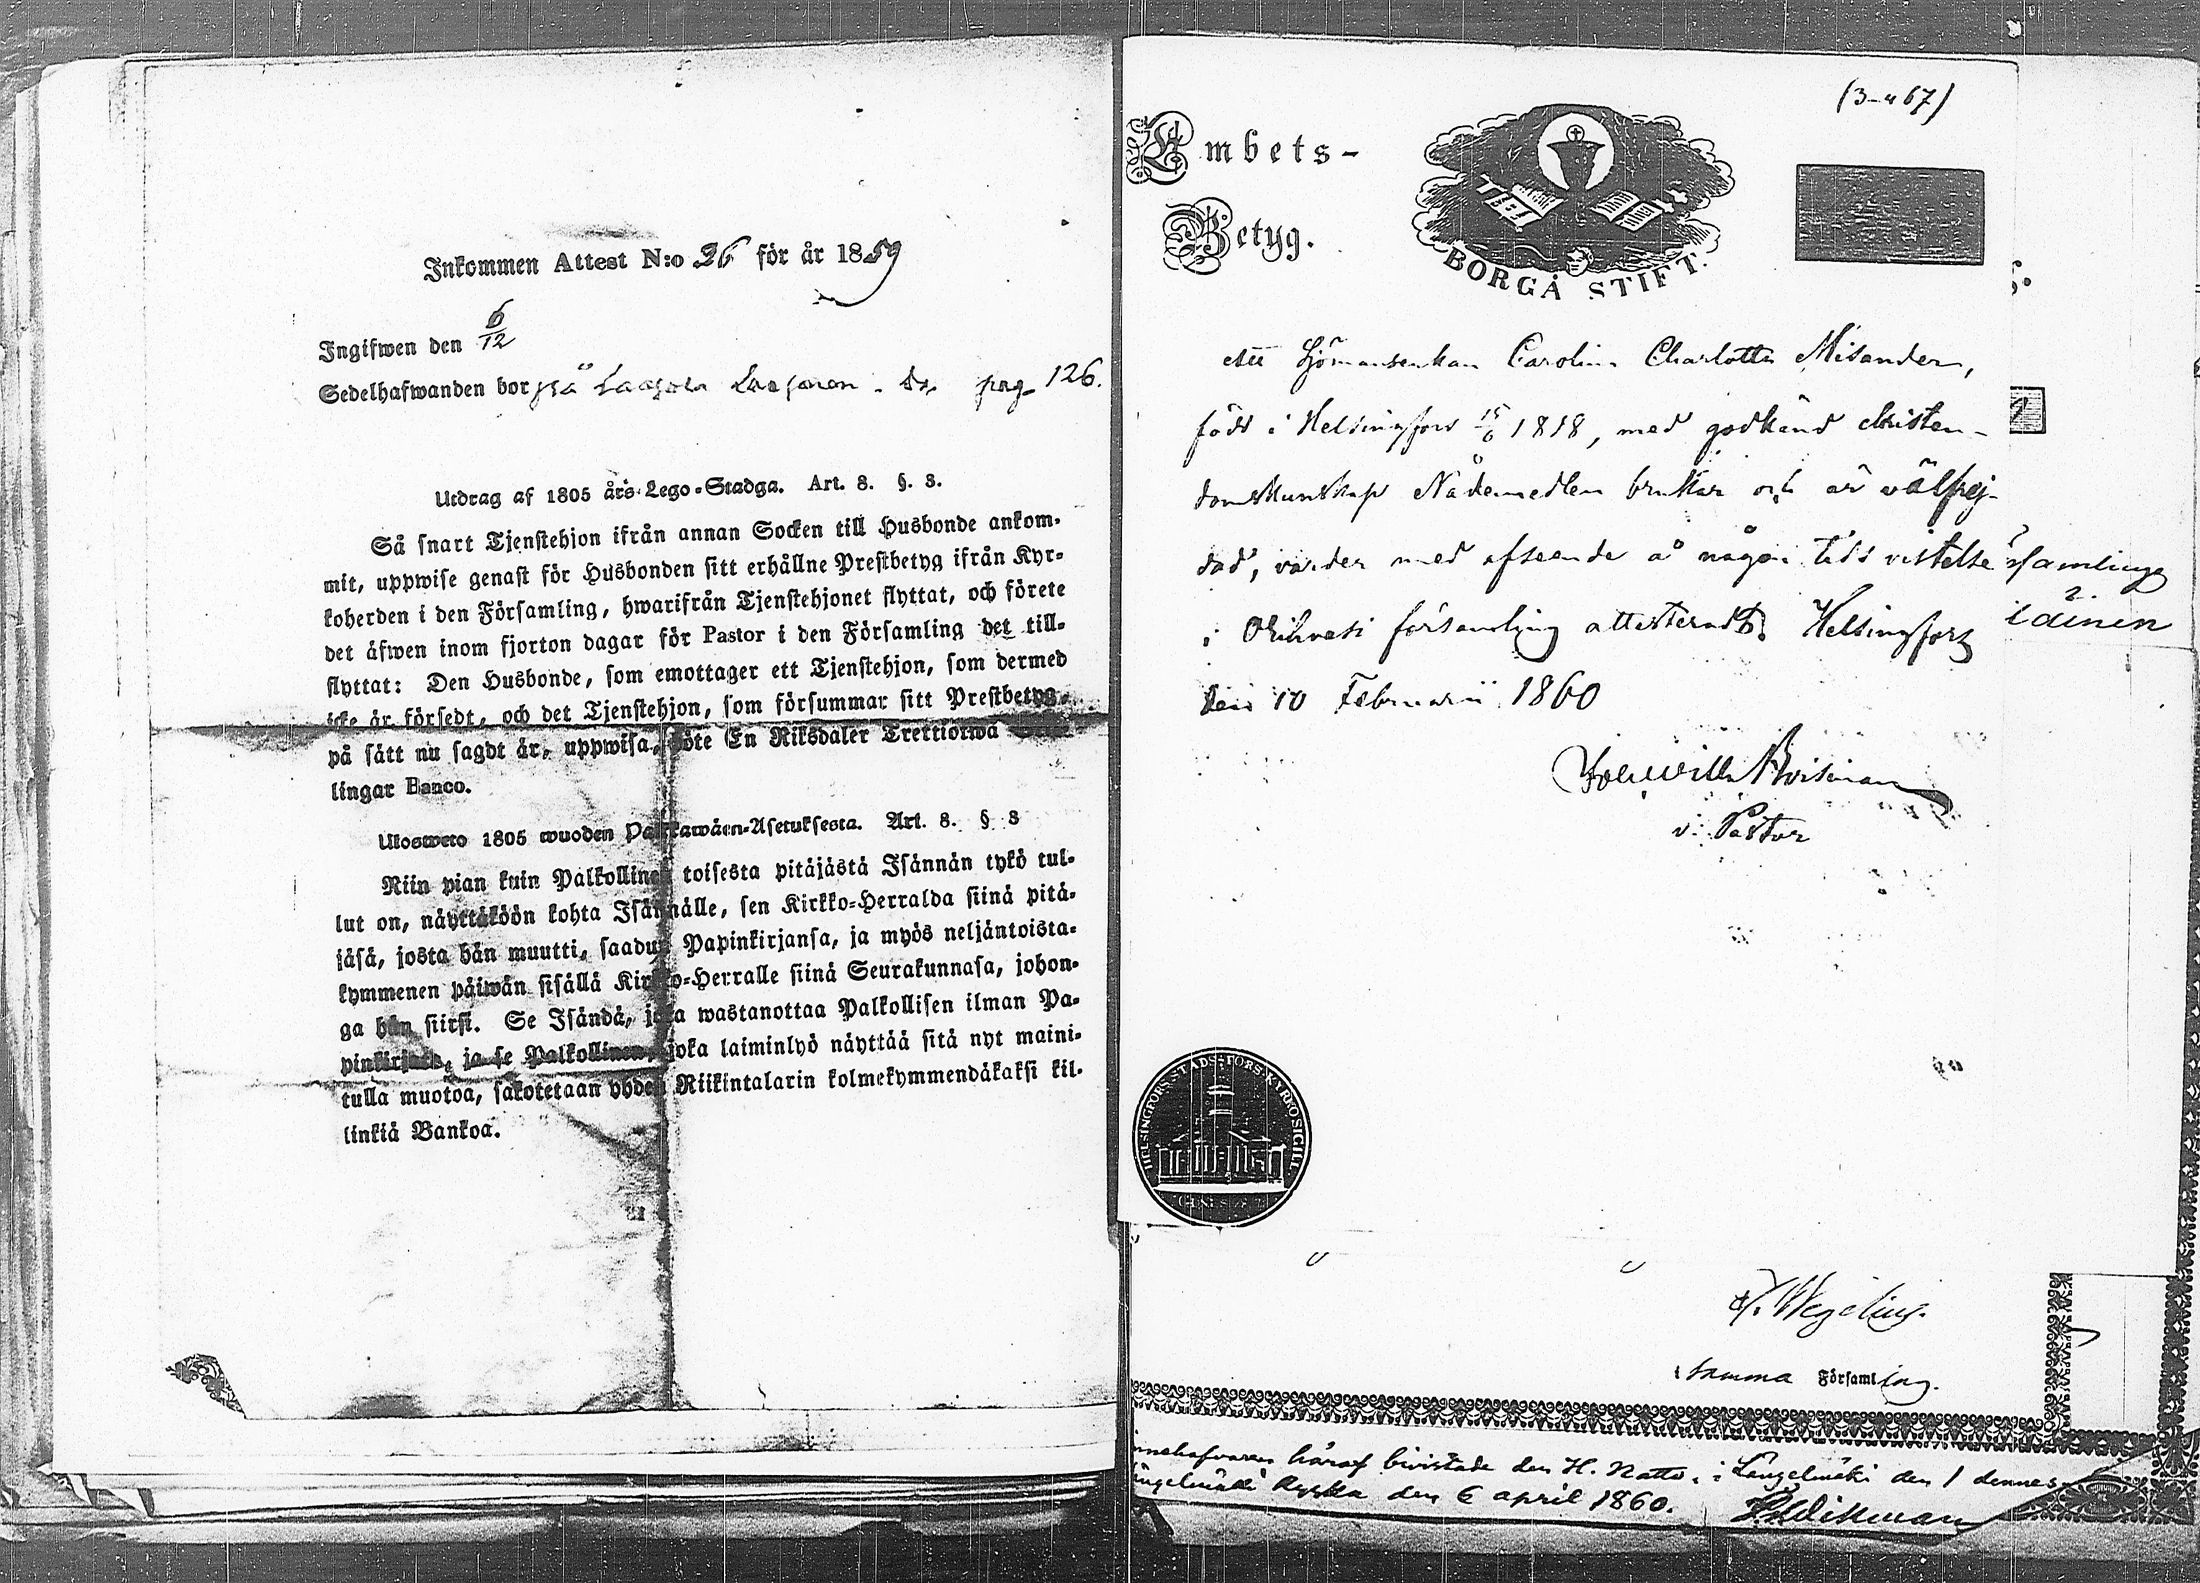 Inkommen Attest N:o 26 för år 1859
Ingifwen den 6/12
Sedelhafwanden bor på pag. 126.
Utdrag af 1805 års Lego-Stadga. Art. 8. §. 3.
Så snart Tjenstehjon ifrån annan Socken till Husbonde ankom-
mit, uppwise genast för Husbonden sitt erhållne Prestbetyg ifrån Kyr-
koherden i den Församling, hwarifrån Tjenstehjonet flyttat, och förete
det äfwen inom fjorton dagar för Pastor i den Församling det till-
flyttat: Den Husbonde, som emottager ett Tjenstehjon, som dermed
icke är försedt, och det Tjenstehjon, som försummar sitt Prestbetyg,
på sätt nu sagdt är, uppwisa, böte En Riksdaler Trettiotwå
lingar Banco.
Ulosweto 1805 wuoden Palkkawäen-Asetuksesta. Art. 8. § 3
Niin pian kuin Palkollinen toisesta pitäjästä Isännän tykö tul-
lut on, näyttäköön kohta Isännälle, sen Kirkko-Herralda siinä pitä-
jäsä, josta hän muutti, saadun Papinkirjansa, ja myös neljäntoista-
kymmenen päiwän sisällä Kirkko-Herralle siinä Seurakunnasa, johon-
ga hän siirsi. Se Isändä, joka wastanottaa Palkollisen ilman Pa-
pinkirjata, ja se Palkollinen, joka laiminlyö näyttää sitä nyt maini-
tulla muotoa, sakotetaan yhden Riikintalarin kolmekymmendäkaksi kil-
linkiä Bankoa.
(3-467)
Embets-
Betyg.
BORGÅ STIFT.
att Sjömansenkan Carolina Charlotta Misander,
född i Helsingfors 15/6 1818, med godkänd christen-
domskunskap Nådemedlen brukar och är välfrej-
dad, varder med afseende å någon tids vistelse
i Orihvesi församling attesteradt. Helsingfors
den 10 Februarii 1860
v. Pastor
samlinge
HELSINGFORS STADS FÖRS. KYRKO SIGILL
Wegelius.
i samma Församling.
innehafvaren häraf bivistade den H. Nattv. i Längelmäki den 1 dennes
Längelmäki Kyrka den 6 april 1860.